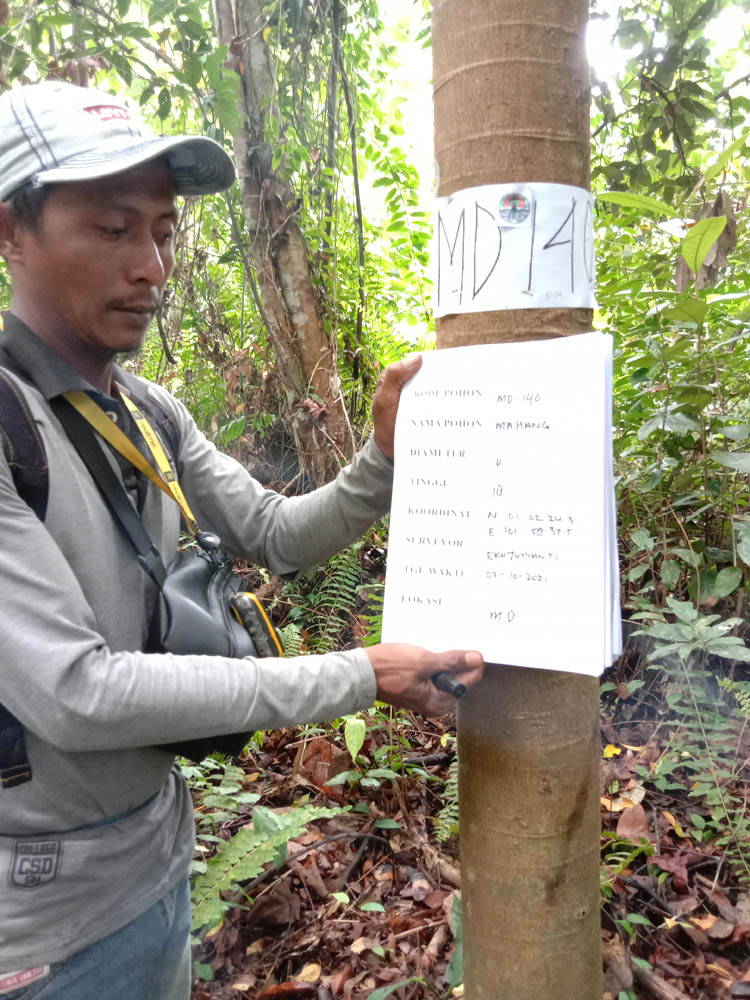 MD 140
KODE POHON MD 140
NAMA POHON MAHANG
DIAMETUR 11
TINGGI 10
KOORDINAT N 01 02 24.3
E 101 58 32.5
SURVEYOR EKO JUMIANTI
TGL WAKTU 07-10-2021
LOKASI MD
COLLEGE
CSD